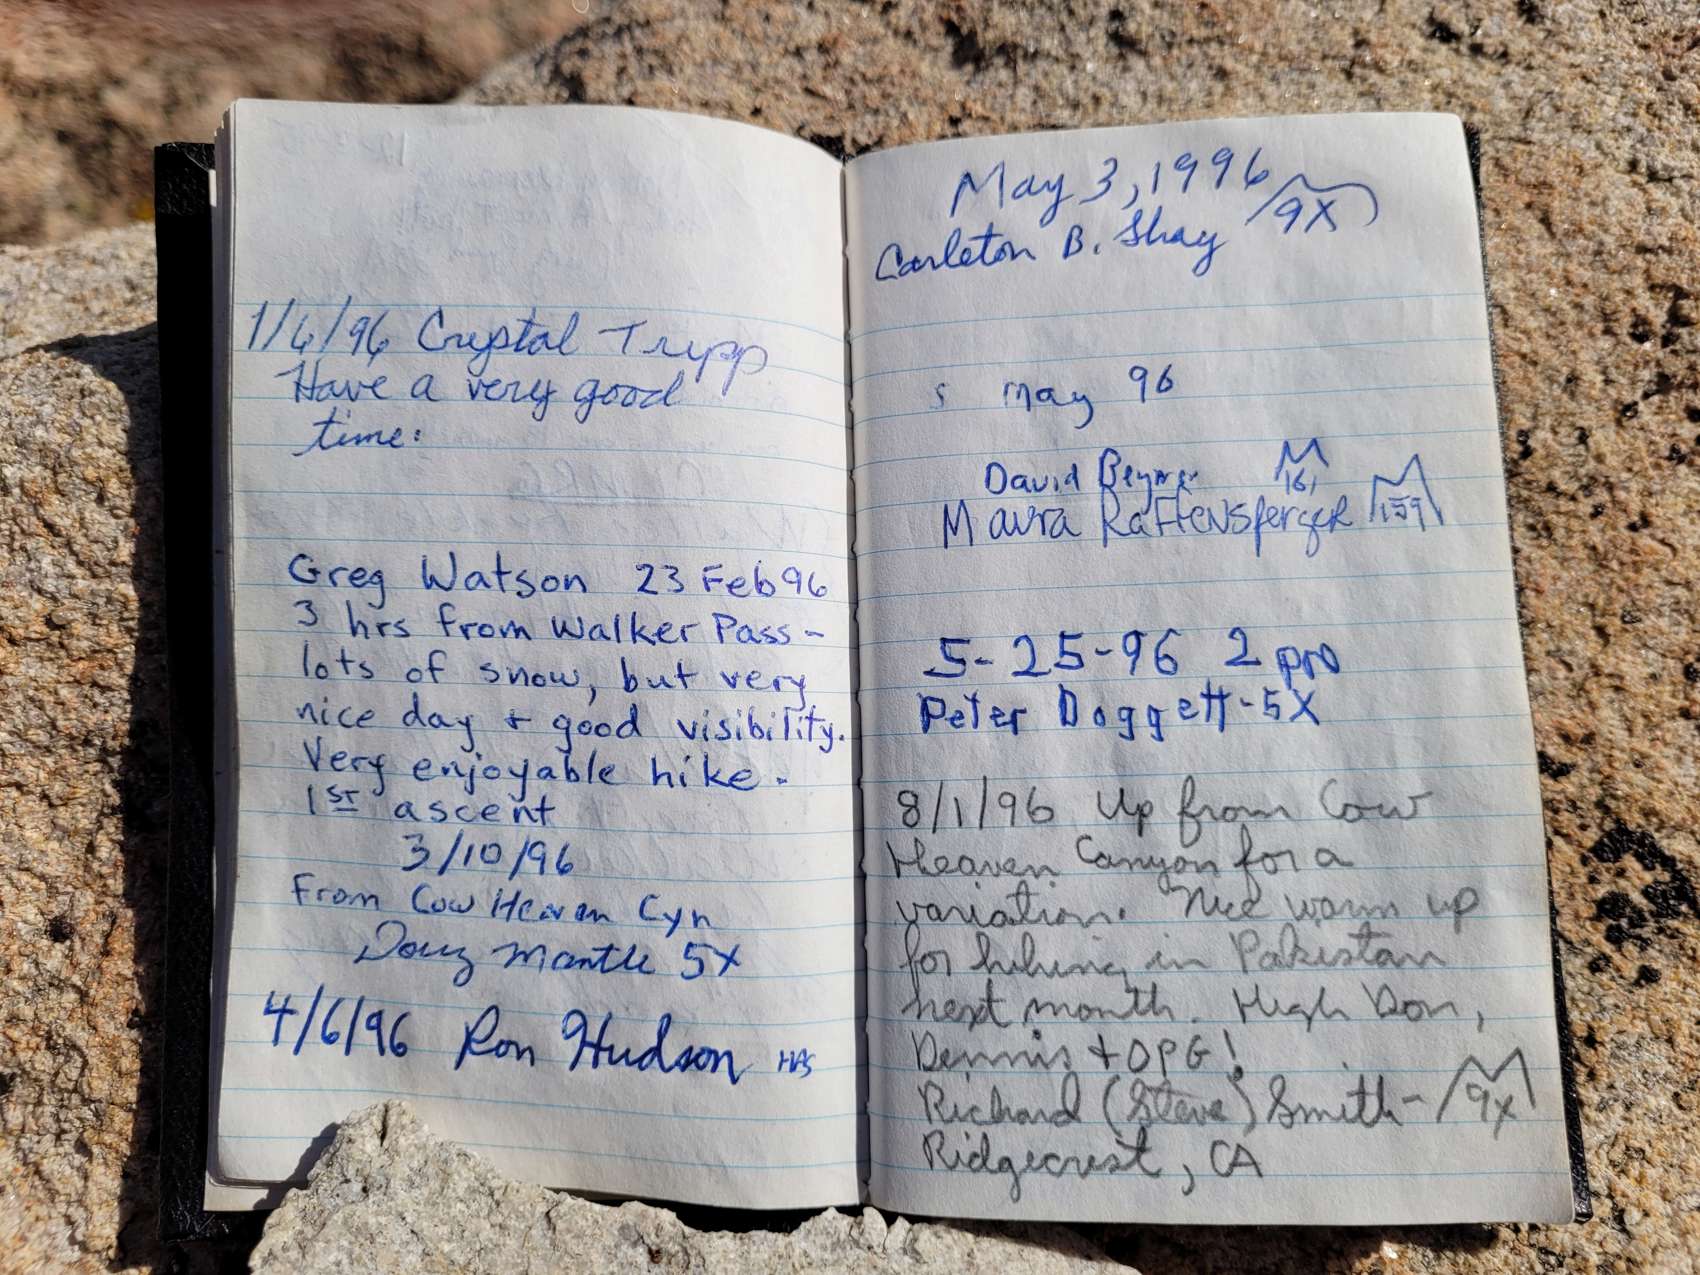 1/6/96 Crystal Tripp
Have a very good
time:
Greg Watson 23 Feb 96
3 hrs from Walker Pass -
lots of snow, but very
nice day + good visibility.
Very enjoyable hike.
1ST ascent
3/10/96
From Cow Heaven Cyn
Doug Mantle 5X
4/6/96 Ron Hudson HPS
May 3, 1996
9X
Carleton B. Shay
5 May 96
David
161
Maura Raffensperger 159
5-25-96 2 pm
Peter Doggett-5X
8/1/96 Up from Cow
Heaven Canyon for a
variation. Nice warm up
for hiking in Pakistan
next month. High Don,
Dennis + DPG!
Richard (Steve) Smith- 9X
Ridgecrest, CA